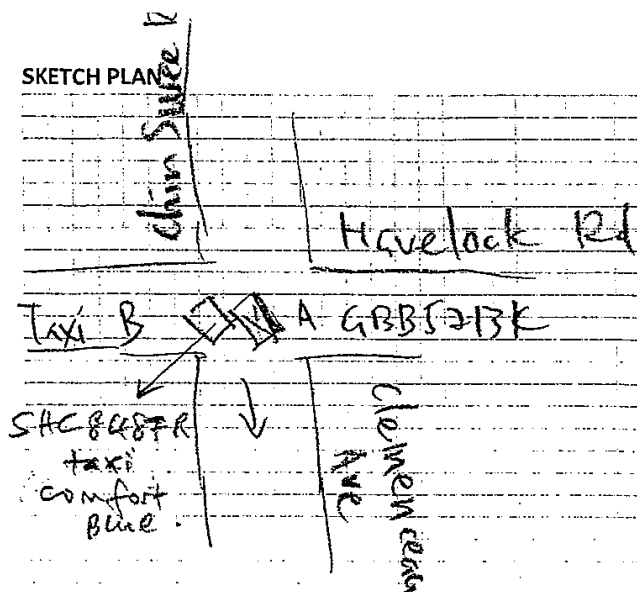 SKETCH PLAN
Chin Swee R
Havelock Rd
Taxi B
A GBB5713K
SHC8487R
taxi
comfort
Blue.
Clemenceau
Ave